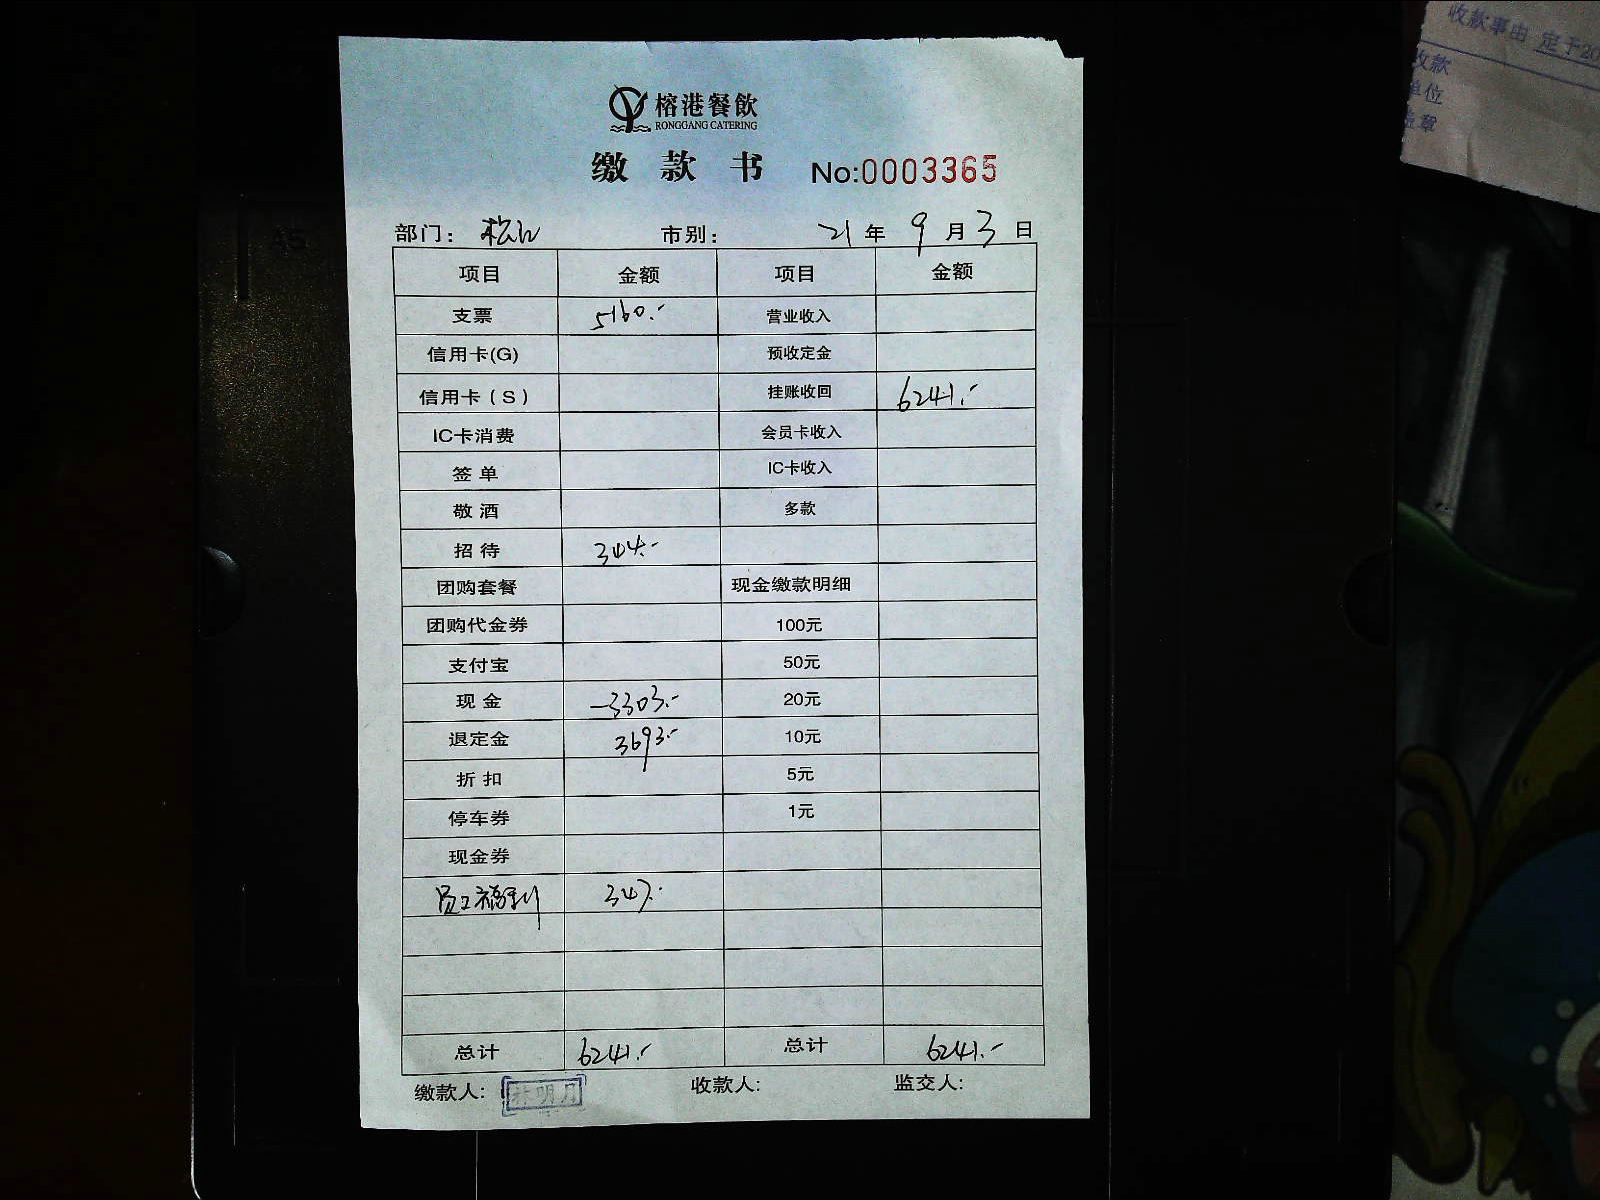 榕港餐飲
RONGGANG CATERING
缴款书 No:0003365
部门: 松江 市别: 21年9月3日
项目 金额 项目 金额
支票 5160.- 营业收入
信用卡(G) 预收定金
信用卡(S) 挂账收回 6241.-
IC卡消费 会员卡收入
签单 IC卡收入
敬酒 多款
招待 344.-
团购套餐 现金缴款明细
团购代金券 100元
支付宝 50元
现金 -3303.- 20元
退定金 3693.- 10元
折扣 5元
停车券 1元
现金券
员工福利 347.-
总计 6241.- 总计 6241.-
缴款人: 明月 收款人: 监交人:
收款事由 定于20
收款
单位
盖章